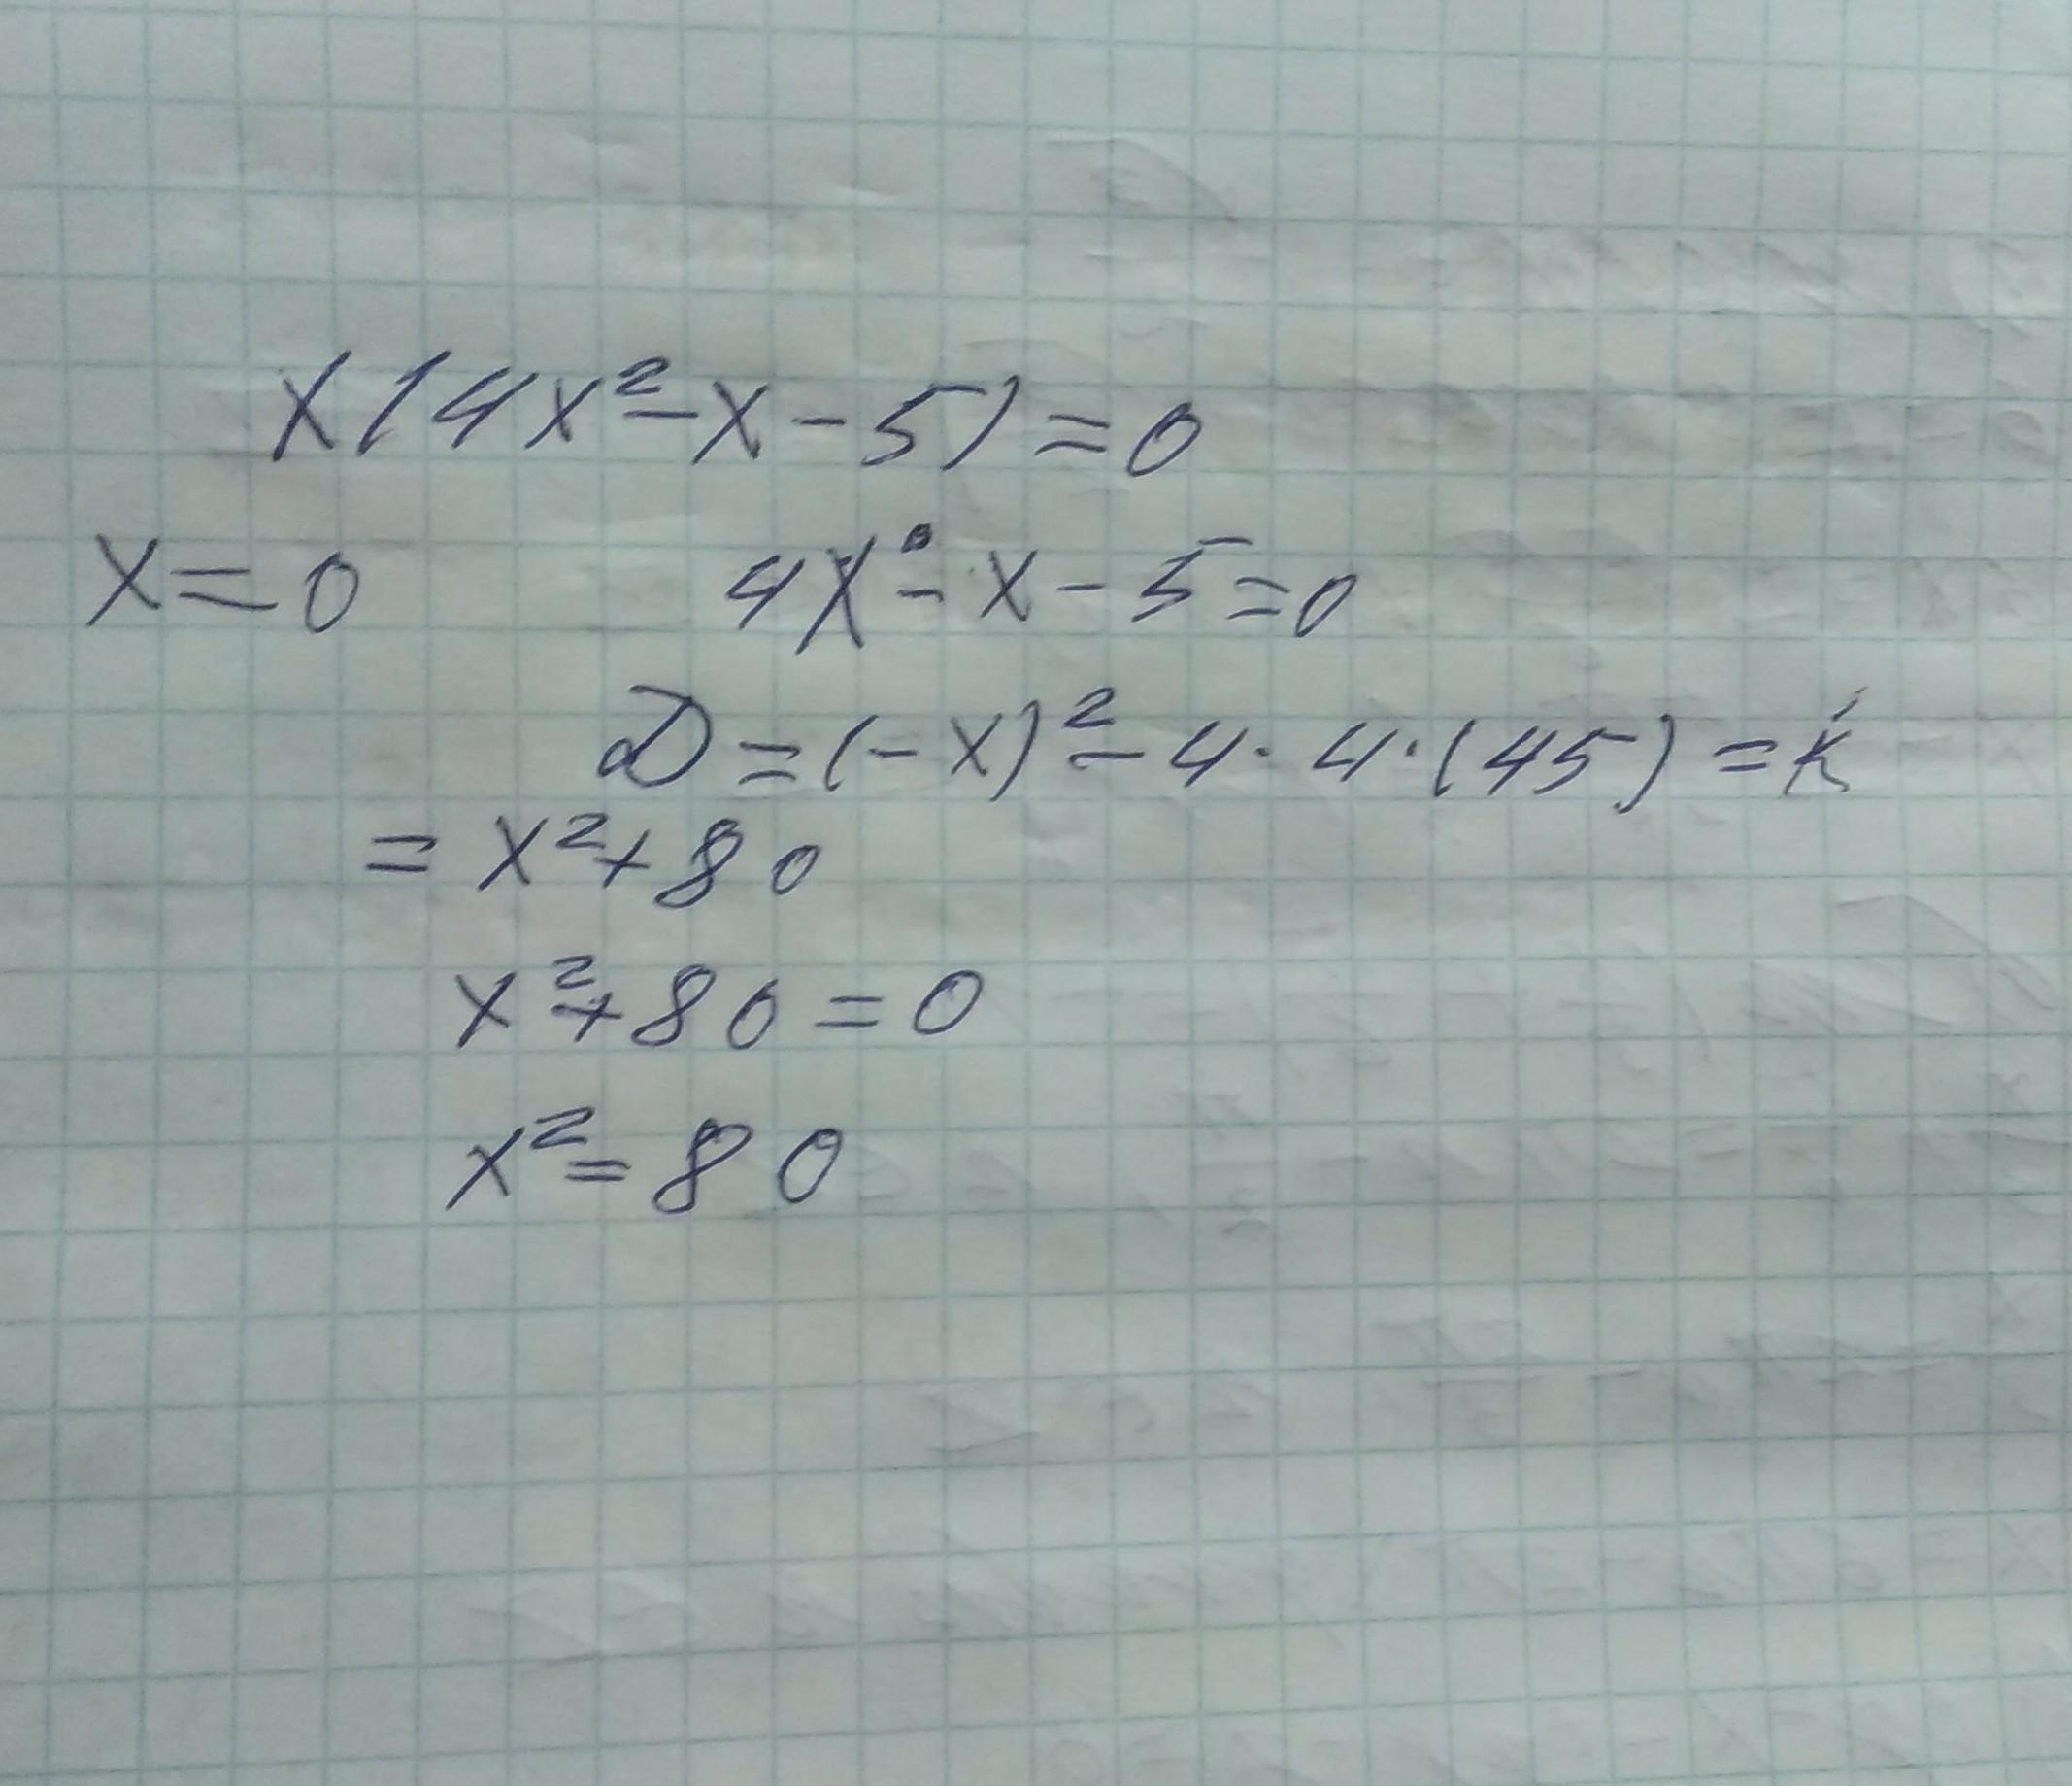 x(4x²-x-5)=0
x=0 4x²-x-5=0
D=(-x)²-4·4·(45)=
=x²+80
x²+80=0
x²=80